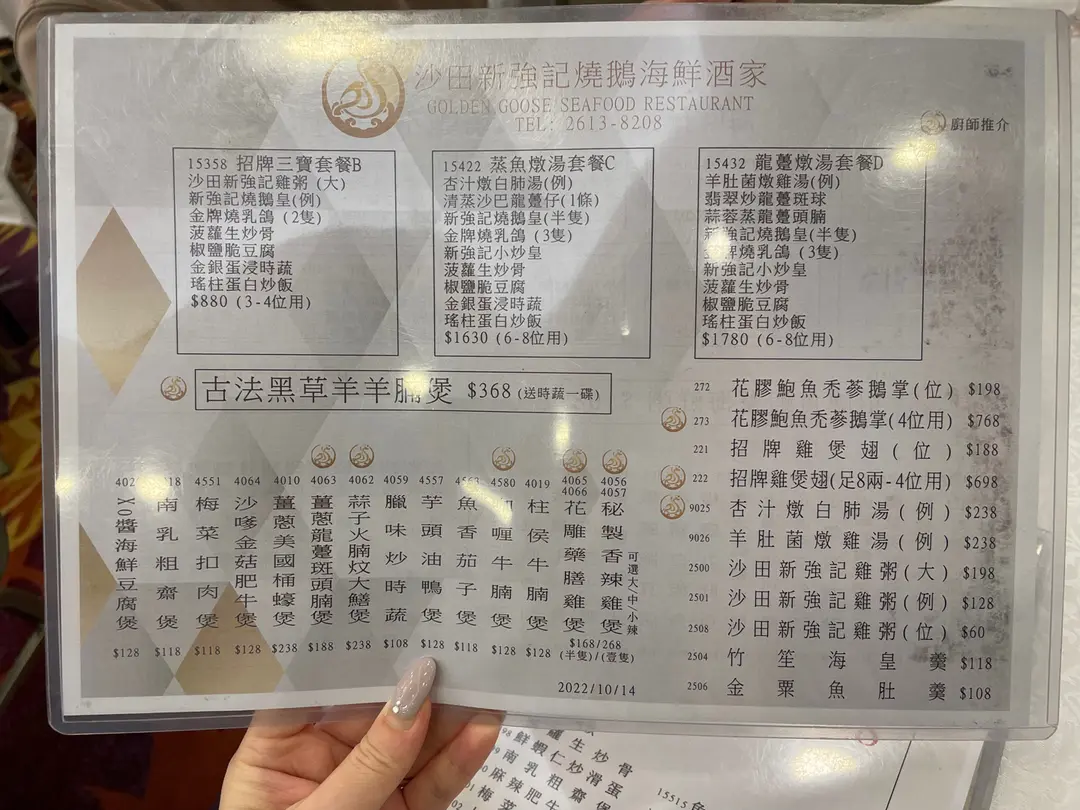 沙田新強記燒鵝海鮮酒家
GOLDEN GOOSE SEAFOOD RESTAURANT
TEL: 2613-8208
廚師推介
15358 招牌三寶套餐B
沙田新強記雞粥 (大)
新強記燒鵝皇(例)
金牌燒乳鴿 (2隻)
菠蘿生炒骨
椒鹽脆豆腐
金銀蛋浸時蔬
瑤柱蛋白炒飯
$880 (3-4位用)
15422 蒸魚燉湯套餐C
杏汁燉白肺湯(例)
清蒸沙巴龍躉仔(1條)
新強記燒鵝皇(半隻)
金牌燒乳鴿 (3隻)
新強記小炒皇
菠蘿生炒骨
椒鹽脆豆腐
金銀蛋浸時蔬
瑤柱蛋白炒飯
$1630 (6-8位用)
15432 龍躉燉湯套餐D
羊肚菌燉雞湯(例)
翡翠炒龍躉斑球
蒜蓉蒸龍躉頭腩
新強記燒鵝皇(半隻)
金牌燒乳鴿 (3隻)
新強記小炒皇
菠蘿生炒骨
椒鹽脆豆腐
瑤柱蛋白炒飯
$1780 (6-8位用)
古法黑草羊羊腩煲 $368 (送時蔬一碟)
XO醬海鮮豆腐煲 $128
南乳粗齋煲 $118
4551 梅菜扣肉煲 $118
4064 沙嗲金菇肥牛煲 $128
4010 薑蔥美國桶蠔煲 $238
4063 薑蔥龍躉斑頭腩煲 $188
4062 蒜子火腩炆大鱔煲 $238
4059 臘味炒時蔬 $108
4557 芋頭油鴨煲 $128
魚香茄子煲 $118
4580 咖喱牛腩煲 $128
4019 柱侯牛腩煲 $128
4065 4066 花雕藥膳雞煲
4056 4057 秘製香辣雞煲 可選大/中/小辣
$168/268
(半隻)/(壹隻)
272 花膠鮑魚禿蔘鵝掌(位) $198
273 花膠鮑魚禿蔘鵝掌(4位用) $768
221 招牌雞煲翅(位) $188
222 招牌雞煲翅(足8兩-4位用) $698
9025 杏汁燉白肺湯(例) $238
9026 羊肚菌燉雞湯(例) $238
2500 沙田新強記雞粥(大) $198
2501 沙田新強記雞粥(例) $128
2508 沙田新強記雞粥(位) $60
2504 竹笙海皇羹 $118
2506 金粟魚肚羹 $108
2022/10/14
蘿生炒骨
鮮蝦仁炒滑蛋
南乳粗齋煲
麻辣肥牛
梅菜
15515